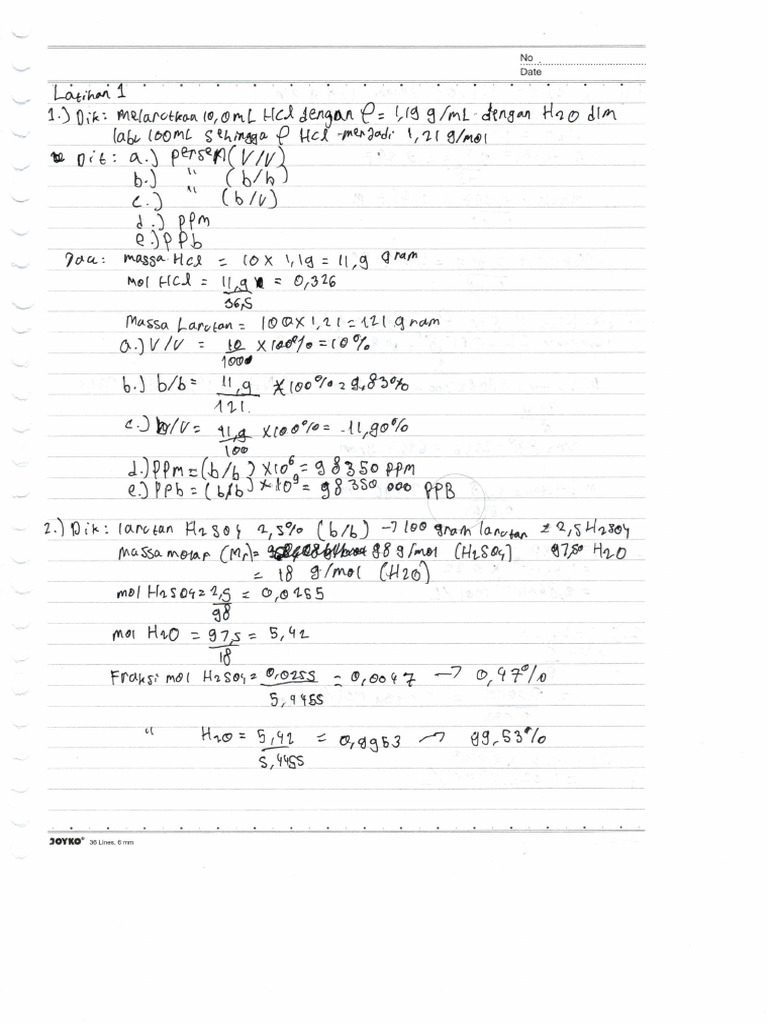 No
Date
Latihan 1
1.) Dik: Melarutkan 10,0mL HCl dengan ρ = 1,19 g/mL dengan H2O dlm
labu 100mL sehingga ρ HCl menjadi 1,21 g/mol
Dit: a.) persen (V/V)
b.) " (b/b)
c.) " (b/v)
d.) ppm
e.) PPb
Jaw: massa HCl = 10 x 1,19 = 11,9 gram
mol HCl = 11,9 = 0,326
36,5
Massa Larutan = 100 x 1,21 = 121 gram
a.) V/V = 10 x 100% = 10%
100
b.) b/b = 11,9 x 100% = 9,83%
121.
c.) b/V = 11,9 x 100% = 11,90%
100
d.) PPm = (b/b) x 10⁶ = 98350 PPM
e.) PPb = (b/b) x 10⁹ = 98 350 000 PPB
2.) Dik: larutan H2SO4 2,5% (b/b) → 100 gram larutan = 2,5 H2SO4
Massa molar (Mr) = 98 g/mol (H2SO4) 97,5 H2O
= 18 g/mol (H2O)
mol H2SO4 = 2,5 = 0,0255
98
mol H2O = 97,5 = 5,42
18
Fraksi mol H2SO4 = 0,0255 = 0,0047 → 0,47%
5,4455
" H2O = 5,42 = 0,9953 → 99,53%
5,4455
JOYKO® 36 Lines, 6 mm